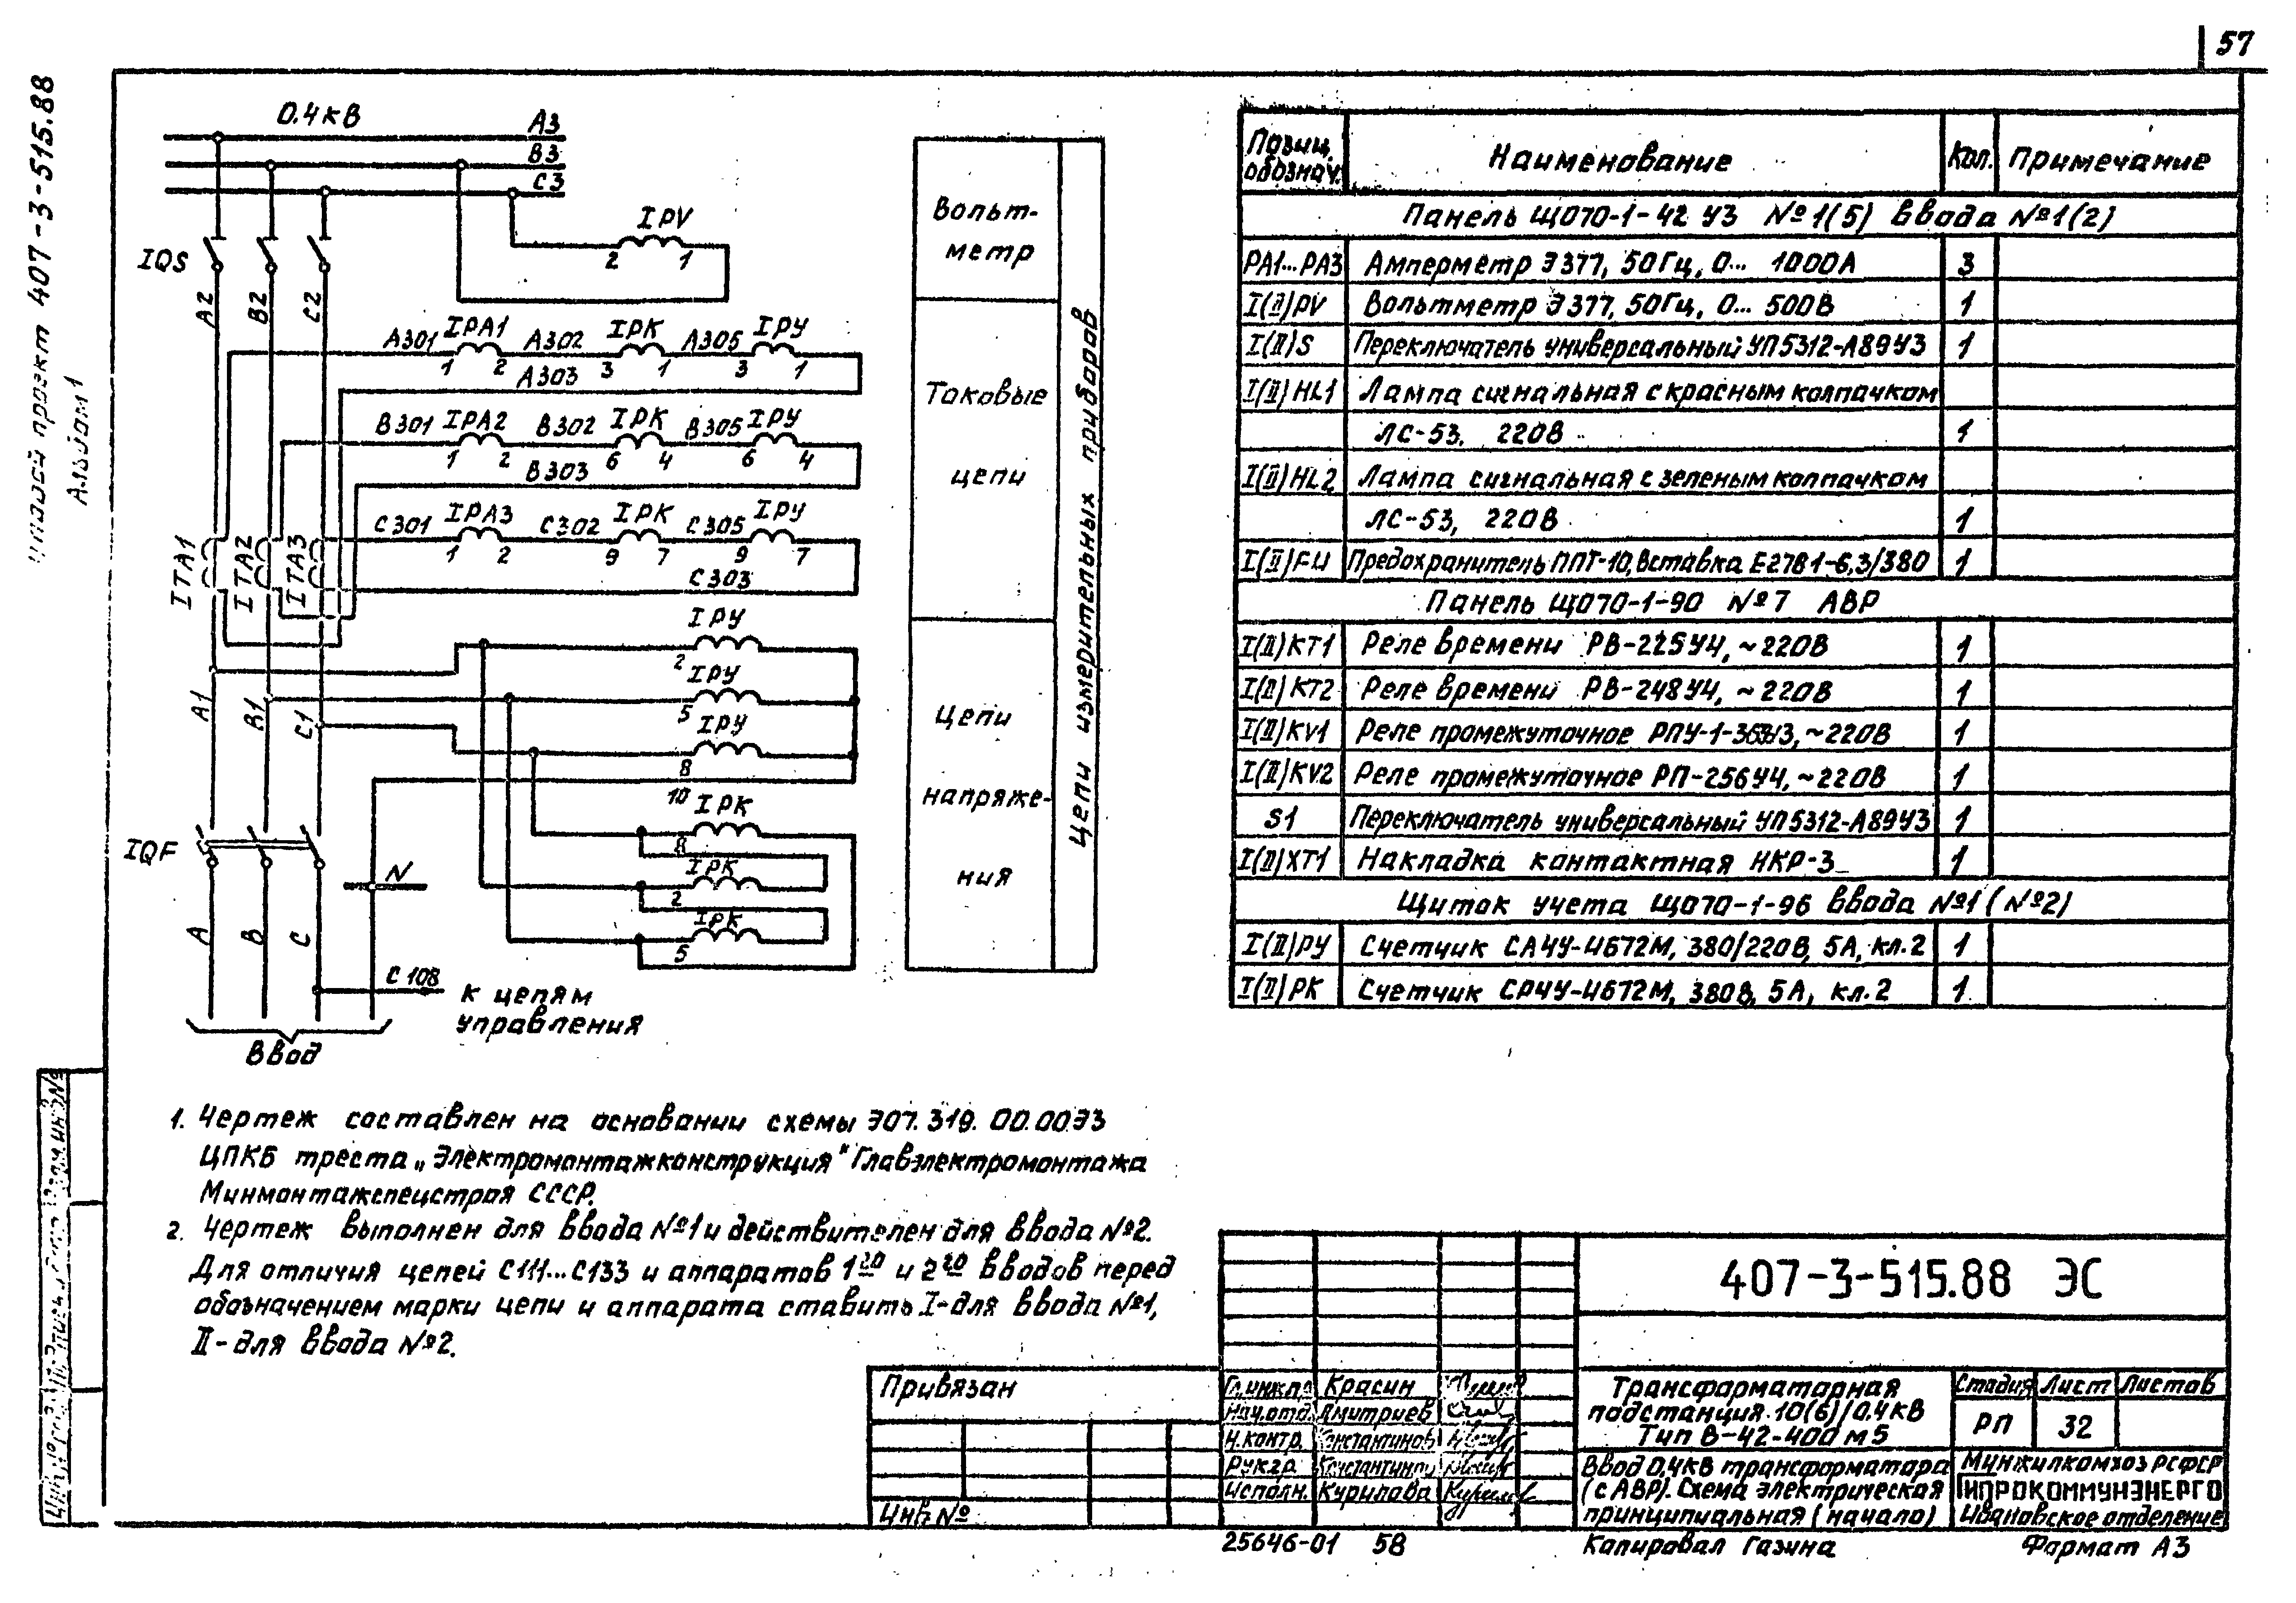 57
407-3-515.88
Альбом 1
0.4кВ
А3
В3
С3
IPV
2 1
IQS
А2
В2
С2
А301 IPA1 А302 IPK А305 IPУ
1 2 3 1 3 1
А303
В301 IPA2 В302 IPK В305 IPУ
1 2 6 4 6 4
В303
С301 IPA3 С302 IPK С305 IPУ
1 2 9 7 9 7
С303
ITA1
ITA2
ITA3
IPУ
2
IPУ
5
IPУ
8
10
IPK
8
IPK
2
IPK
5
А1
В1
С1
IQF
N
А
В
С
С108
К цепям
управления
Ввод
Вольт-
метр
Токовые
цепи
Цепи
напряже-
ния
Цепи измерительных приборов
Позиц. обознач. Наименование Кол. Примечание
Панель ЩО70-1-42 У3 №1(5) ввода №1(2)
PA1...PA3 Амперметр Э377, 50Гц, 0... 1000А 3
I(II)PV Вольтметр Э377, 50Гц, 0... 500В 1
I(II)S Переключатель универсальный УП5312-А89У3 1
I(II)HL1 Лампа сигнальная с красным колпачком
ЛС-53, 220В 1
I(II)HL2 Лампа сигнальная с зеленым колпачком
ЛС-53, 220В 1
I(II)FU Предохранитель ППТ-10, вставка Е27В1-6,3/380 1
Панель ЩО70-1-90 №7 АВР
I(II)KT1 Реле времени РВ-225У4, ~220В 1
I(II)KT2 Реле времени РВ-248У4, ~220В 1
I(II)KV1 Реле промежуточное РПУ-1-363У3, ~220В 1
I(II)KV2 Реле промежуточное РП-256У4, ~220В 1
S1 Переключатель универсальный УП5312-А89У3 1
I(II)XT1 Накладка контактная НКР-3 1
Щиток учета ЩО70-1-96 ввода №1 (№2)
I(II)PУ Счетчик СА4У-И672М, 380/220В, 5А, кл.2 1
I(II)PK Счетчик СР4У-И672М, 380В, 5А, кл.2 1
1. Чертеж составлен на основании схемы Э07.319.00.00Э3
ЦПКБ треста „Электромонтажконструкция" Главэлектромонтажа
Минмонтажспецстроя СССР.
2. Чертеж выполнен для ввода №1 и действителен для ввода №2.
Для отличия цепей С111...С133 и аппаратов 1го и 2го вводов перед
обозначением марки цепи и аппарата ставить I-для ввода №1,
II-для ввода №2.
Привязан
Инв.№
Гл.инж.пр. Красин
Нач.отд. Дмитриев
Н.контр. Константинов
Рук.гр. Константинов
Исполн. Курилова
407-3-515.88 ЭС
Трансформаторная
подстанция 10(6)/0.4кВ
Тип В-42-400 м5
Стадия Лист Листов
РП 32
Ввод 0,4кВ трансформатора
(с АВР). Схема электрическая
принципиальная (начало)
Минжилкомхоз РСФСР
ГИПРОКОММУНЭНЕРГО
Ивановское отделение
25646-01 58
Копировал Газина
Формат А3